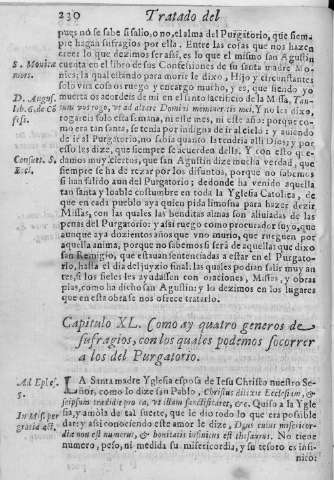 230 Tratado del
pues no se sabe si salio, o no, el alma del Purgatorio, que siem-
pre hagan sufragios por ella. Entre las cosas que nos hazen
creer lo que dezimos ser assi, es lo que el mismo san Agustin
S. Monica
mores.
cuenta en el libro de sus Confessiones de su santa madre Mo-
nica; la qual estando para morir le dixo, Hijo y circunstantes
solo vna cosa os ruego y encargo mucho, y es, que siendo yo
D. Augus.
lib. 9. de Cō
fess.
muerta os acordeis de mi en el santo sacrificio de la Missa, Tan-
tum vos rogo, vt ad altare Domini memineritis mei. Y no lea dixo,
rogareis solo esta semana, ni este mes, ni este año; porque co-
mo era tan santa, se tenia por indigna de ir al cielo: y auiendo
de ir al Purgatorio, no sabia quanto la tendria alli Dios; y por
esso les dize, que siempre se acuerden della. Y con esto que-
damos muy ciertos, que san Agustin dize mucha verdad, que
Consuet. S.
Eccl.
siempre se ha de rezar por los difuntos, porque no sabemos
si han salido aun del Purgatorio: dedonde ha venido aquella
tan santa y loable costumbre en toda la Yglesia Catolica, de
que en cada pueblo aya quien pida limosna para hazer dezir
Missas, con las quales las benditas almas son aliuiadas de las
penas del Purgatorio: y assi ruego como procurador suyo, que
aunque aya dozientos años que vno murio, que rueguen por
aquella anima, porque no sabemos si serà de aquellas que dixo
san Remigio, que estauan sentenciadas a estar en el Purgato-
rio, hasta el dia del juyzio final: las quales podian salir muy an-
tes, si los fieles les ayudassen con oraciones, Missas, y obras
pias, como ha dicho san Agustin: y lo dezimos en los lugares
que en esta obra se nos ofrece tratarlo.
Capitulo XL. Como ay quatro generos de
sufragios, con los quales podemos socorrer
a los del Purgatorio.
Ad Ephes.
5.
LA Santa madre Yglesia esposa de Iesu Christo nuestro Se-
ñor, como lo dize san Pablo, Christus dilexit Ecclesiam, &
seipsum tradidit pro ea, vt illam sanctificaret, &c. Quiso a la Ygle
In Mis. per
gratia act.
sia, y amòla de tal suerte, que le dio todo lo que era possible
dar: y assi conociendo este amor le dize, Deus cuius misericor-
dia non est numerus, & bonitatis infinitus est thesaurus. No tiene
numero, peso, ni medida su misericordia, y su tesoro es infi-
nico: